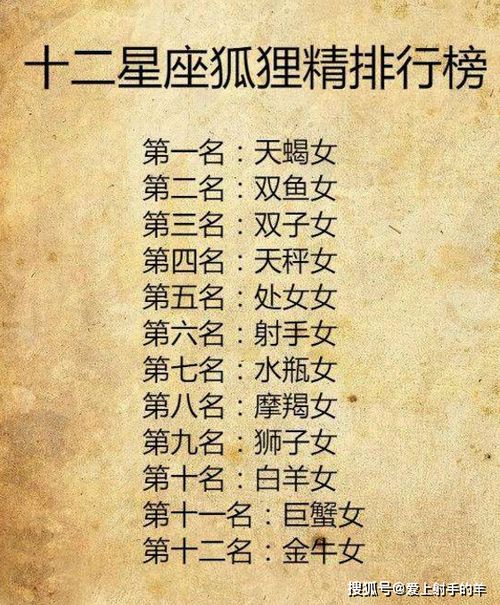 十二星座狐狸精排行榜
第一名：天蝎女
第二名：双鱼女
第三名：双子女
第四名：天秤女
第五名：处女女
第六名：射手女
第七名：水瓶女
第八名：摩羯女
第九名：狮子女
第十名：白羊女
第十一名：巨蟹女
第十二名：金牛女
搜狐号@爱上射手的羊